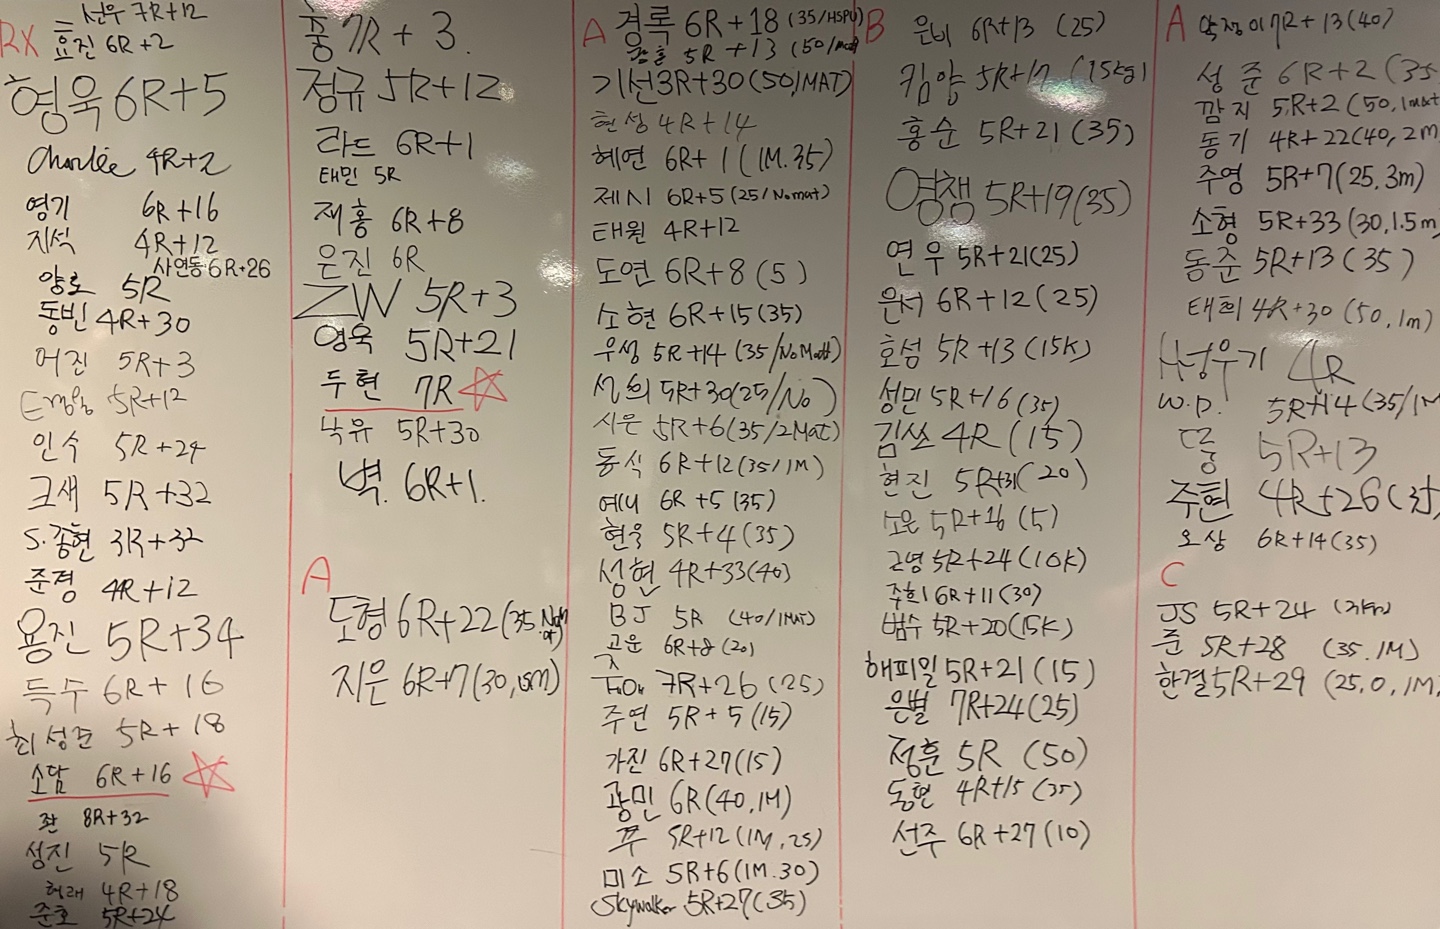 RX
선우 7R+12
효진 6R+2
형욱 6R+5
Charlie 4R+2
영기 6R+16
지석 4R+12
사연동 6R+26
양로 5R
동빈 4R+30
어진 5R+3
5R+12
인수 5R+24
크새 5R+32
S.종현 3R+32
준경 4R+12
용진 5R+34
득수 6R+16
최성준 5R+18
소담 6R+16
좌 8R+32
성진 5R
형래 4R+18
준호 5R+24
홍 7R+3.
정규 5R+12
라드 6R+1
태민 5R
재홍 6R+8
은진 6R
ZW 5R+3
영욱 5R+21
두현 7R
낙유 5R+30
벽. 6R+1.
A
도형 6R+22(35
지은 6R+7(30,
A
경록 6R+18(35/HSPU)
5R+13 (50/mat)
기선 3R+30(50,1MAT)
현성 4R+14
혜연 6R+1(1M.35)
제시 6R+5(25/Nomat)
태원 4R+12
도연 6R+8(5)
소현 6R+15(35)
우성 5R+14(35/NoMatt)
성의 5R+30(25/No)
시은 5R+6(35/2Mat)
동식 6R+12(35/1M)
예나 6R+5(35)
현욱 5R+4(35)
성현 4R+33(40)
BJ 5R (40/1MAT)
고운 6R+8(20)
7R+26(25)
주연 5R+5(15)
가진 6R+27(15)
광민 6R(40,1M)
쭈 5R+12(1M.25)
미소 5R+6(1M.30)
Skywalker 5R+27(35)
B
은비 6R+13 (25)
킴양 5R+17 (15kg)
홍순 5R+21(35)
영쨍 5R+19(35)
연우 5R+21(25)
은서 6R+12(25)
호섬 5R+13(15K)
성민 5R+16(35)
김쏘 4R(15)
현진 5R+31(20)
5R+16(5)
근영 5R+24(10K)
주희 6R+11(30)
범수 5R+20(15K)
해피일 5R+21(15)
은별 7R+24(25)
정훈 5R (50)
동현 4R+15(35)
선주 6R+27(10)
A
7R+13(40)
성준 6R+2(35
깜지 5R+2(50,1mat
동기 4R+22(40,2m)
주영 5R+7(25.3m)
소형 5R+33(30,1.5m)
동준 5R+13(35)
태희 4R+30(50,1m)
4R
W.D. 5R+14(35/1M
5R+13
주현 4R+26(35)
오상 6R+14(35)
C
JS 5R+24
준 5R+28 (35.1M)
한결 5R+29 (25,0,1M)